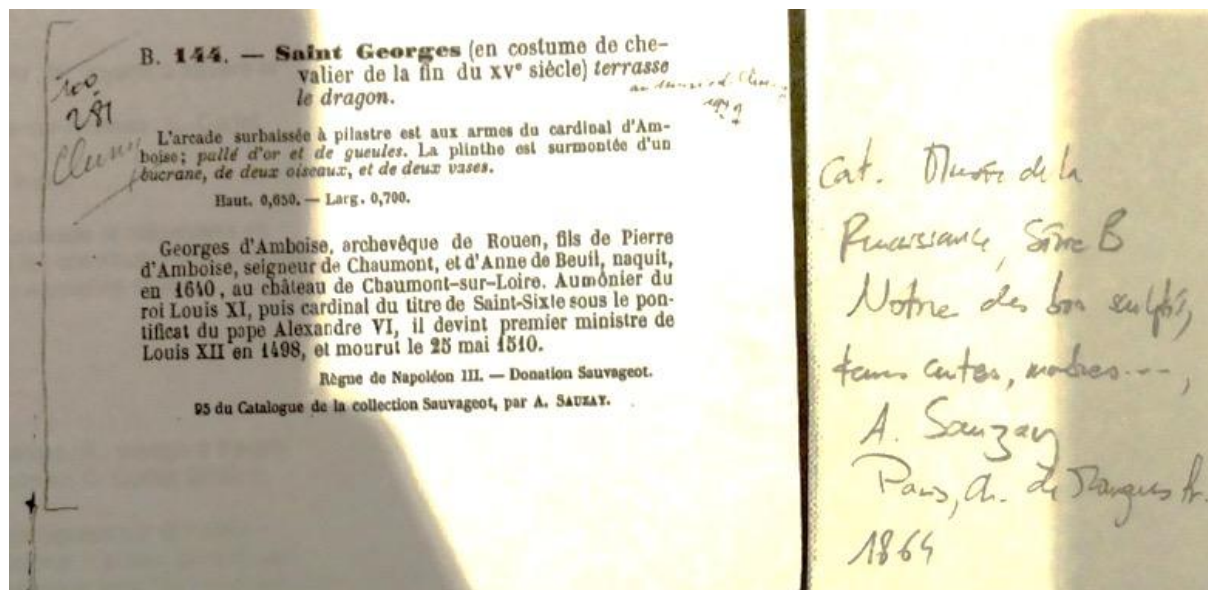 B. 144. — Saint Georges (en costume de che-
valier de la fin du XVe siècle) terrasse
le dragon.
281
Cluny
L'arcade surbaissée à pilastre est aux armes du cardinal d'Am-
boise; pallé d'or et de gueules. La plinthe est surmontée d'un
bucrane, de deux oiseaux, et de deux vases.
Haut. 0,650. — Larg. 0,700.
Georges d'Amboise, archevêque de Rouen, fils de Pierre
d'Amboise, seigneur de Chaumont, et d'Anne de Beuil, naquit,
en 1640, au château de Chaumont-sur-Loire. Aumônier du
roi Louis XI, puis cardinal du titre de Saint-Sixte sous le pon-
tificat du pape Alexandre VI, il devint premier ministre de
Louis XII en 1498, et mourut le 25 mai 1510.
Règne de Napoléon III. — Donation Sauvageot.
95 du Catalogue de la collection Sauvageot, par A. SAUZAY.
Cat. Musée de la
Renaissance, Série B
Notice des bois sculptés,
terres cuites, marbres ---,
A. Sauzay
Paris, Ch. de Mourgues fr.
1864